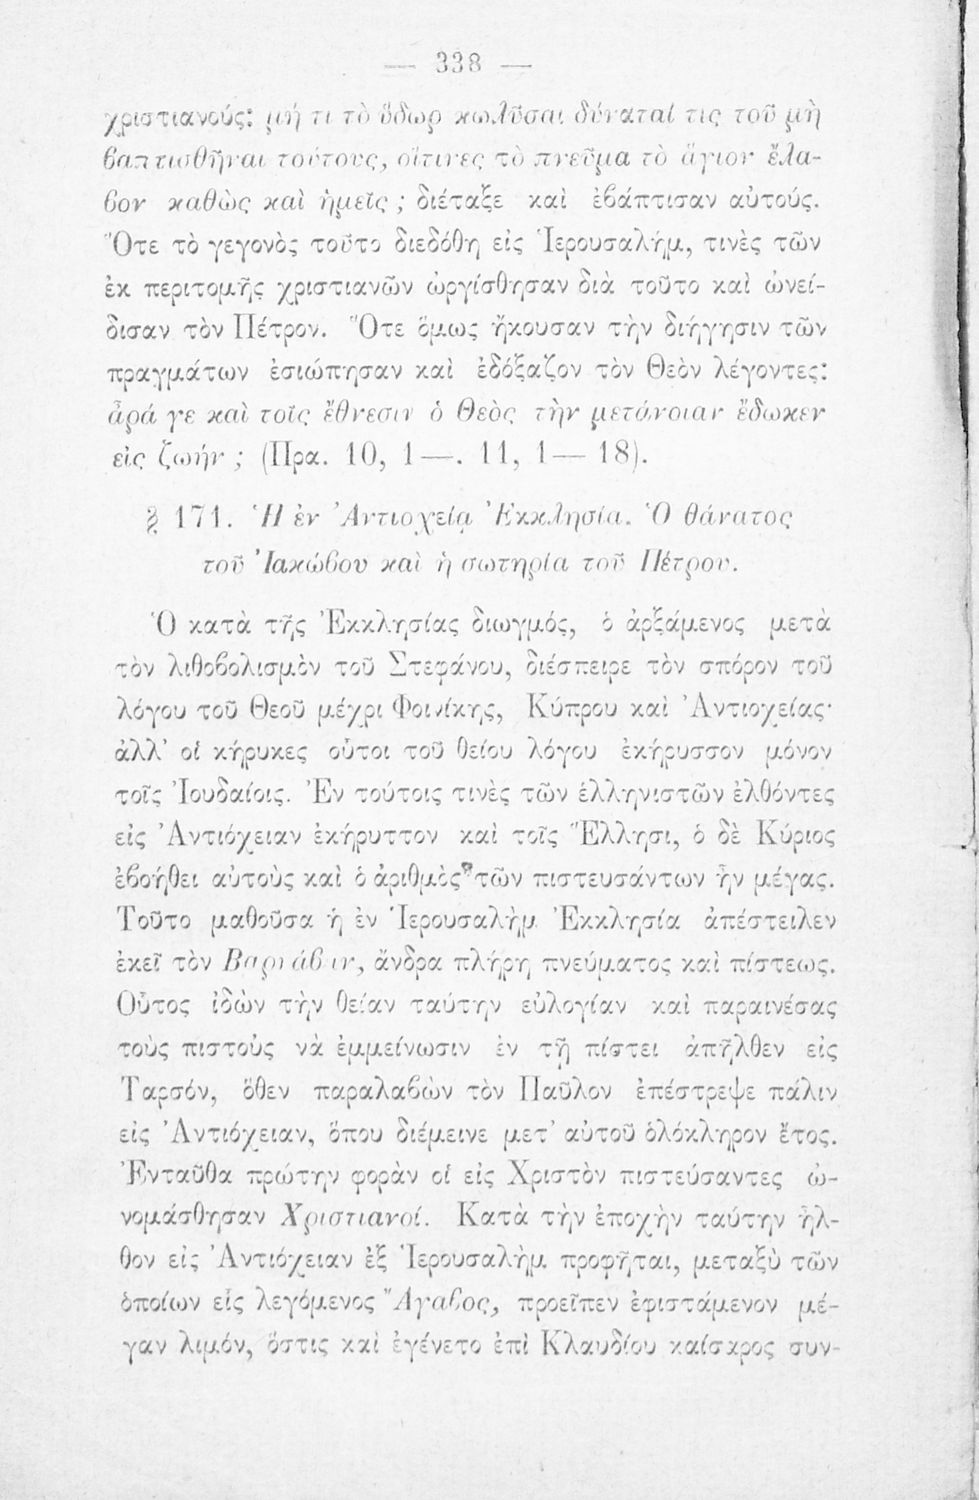 — 338 —
χριστιανούς: μή τι τὸ ὕδωρ κωλῦσαι δύναταί τις τοῦ μὴ
βαπτισθῆναι τούτους, οἵτινες τὸ πνεῦμα τὸ ἅγιον ἔλα-
βον καθὼς καὶ ἡμεῖς ; διέταξε καὶ ἐβάπτισαν αὐτούς.
Ὅτε τὸ γεγονὸς τοῦτο διεδόθη εἰς Ἱερουσαλήμ, τινὲς τῶν
ἐκ περιτομῆς χριστιανῶν ὠργίσθησαν διὰ τοῦτο καὶ ὠνεί-
δισαν τὸν Πέτρον. Ὅτε ὅμως ἤκουσαν τὴν διήγησιν τῶν
πραγμάτων ἐσιώπησαν καὶ ἐδόξαζον τὸν Θεὸν λέγοντες:
ἆρά γε καὶ τοῖς ἔθνεσιν ὁ Θεὸς τὴν μετάνοιαν ἔδωκεν
εἰς ζωήν ; (Πρα. 10, 1—. 11, 1— 18).
§ 171. Ἡ ἐν Ἀντιοχείᾳ Ἐκκλησία. Ὁ θάνατος
τοῦ Ἰακώβου καὶ ἡ σωτηρία τοῦ Πέτρου.
Ὁ κατὰ τῆς Ἐκκλησίας διωγμός, ὁ ἀρξάμενος μετὰ
τὸν λιθοβολισμὸν τοῦ Στεφάνου, διέσπειρε τὸν σπόρον τοῦ
λόγου τοῦ Θεοῦ μέχρι Φοινίκης, Κύπρου καὶ Ἀντιοχείας·
ἀλλ' οἱ κήρυκες οὗτοι τοῦ θείου λόγου ἐκήρυσσον μόνον
τοῖς Ἰουδαίοις. Ἐν τούτοις τινὲς τῶν ἑλληνιστῶν ἐλθόντες
εἰς Ἀντιόχειαν ἐκήρυττον καὶ τοῖς Ἕλλησι, ὁ δὲ Κύριος
ἐβοήθει αὐτοὺς καὶ ὁ ἀριθμὸς τῶν πιστευσάντων ἦν μέγας.
Τοῦτο μαθοῦσα ἡ ἐν Ἱερουσαλὴμ Ἐκκλησία ἀπέστειλεν
ἐκεῖ τὸν Βαρνάβαν, ἄνδρα πλήρη πνεύματος καὶ πίστεως.
Οὗτος ἰδὼν τὴν θείαν ταύτην εὐλογίαν καὶ παραινέσας
τοὺς πιστοὺς νὰ ἐμμείνωσιν ἐν τῇ πίστει ἀπῆλθεν εἰς
Ταρσόν, ὅθεν παραλαβὼν τὸν Παῦλον ἐπέστρεψε πάλιν
εἰς Ἀντιόχειαν, ὅπου διέμεινε μετ' αὐτοῦ ὁλόκληρον ἔτος.
Ἐνταῦθα πρώτην φορὰν οἱ εἰς Χριστὸν πιστεύσαντες ὠ-
νομάσθησαν Χριστιανοί. Κατὰ τὴν ἐποχὴν ταύτην ἦλ-
θον εἰς Ἀντιόχειαν ἐξ Ἱερουσαλὴμ προφῆται, μεταξὺ τῶν
ὁποίων εἷς λεγόμενος Ἄγαβος, προεῖπεν ἐφιστάμενον μέ-
γαν λιμόν, ὅστις καὶ ἐγένετο ἐπὶ Κλαυδίου καίσαρος συν-